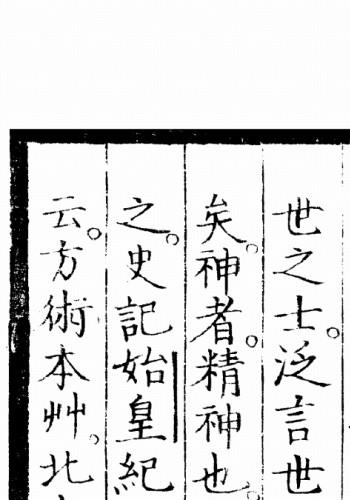 世之士。泛言世
矣。神者。精神也。
之。史記始皇紀
云。方術本艸。北